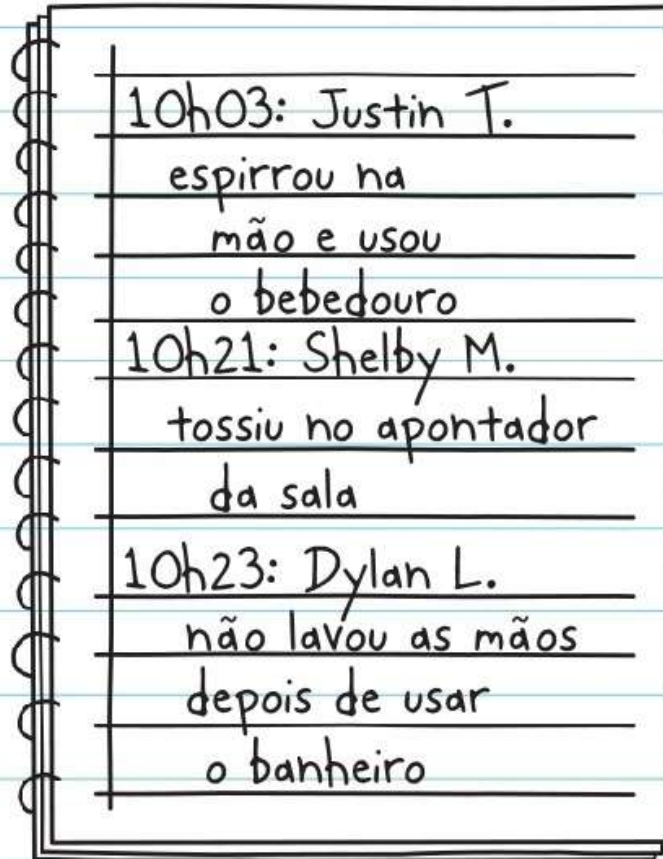 10h03: Justin T.
espirrou na
mão e usou
o bebedouro
10h21: Shelby M.
tossiu no apontador
da sala
10h23: Dylan L.
não lavou as mãos
depois de usar
o banheiro